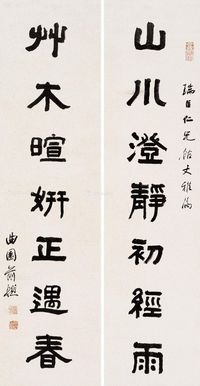 瑞臣仁兄館丈雅屬
山川澄靜初經雨
艸木暄姸正遇春
曲園俞樾